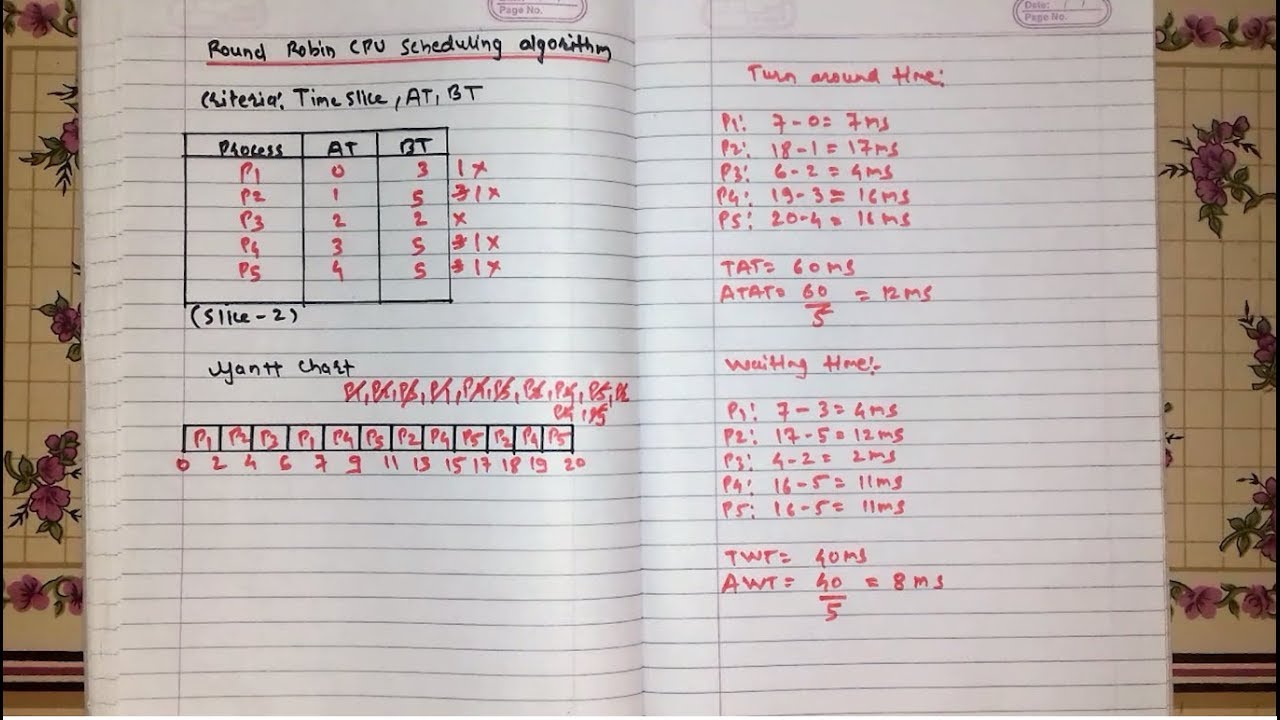 Page No.
Round Robin CPU Scheduling algorithm
Criteria: Time slice, AT, BT
Process AT BT
P1 0 3 1 x
P2 1 5 3 1 x
P3 2 2 x
P4 3 5 3 1 x
P5 4 5 3 1 x
(Slice - 2)
Gantt Chart
P1, P2, P3, P1, P4, P5, P2, P4, P5, P2
P4, P5
P1 P2 P3 P1 P4 P5 P2 P4 P5 P2 P4 P5
0 2 4 6 7 9 11 13 15 17 18 19 20
Date:
Page No.
Turn around time:
P1: 7-0= 7ms
P2: 18-1 = 17ms
P3: 6-2 = 4ms
P4: 19-3 = 16ms
P5: 20-4= 16ms
TAT= 60ms
ATAT= 60/5 = 12ms
Waiting time:-
P1: 7-3=4ms
P2: 17-5=12ms
P3: 4-2= 2ms
P4: 16-5= 11ms
P5: 16-5= 11ms
TWT= 40ms
AWT= 40/5 = 8ms